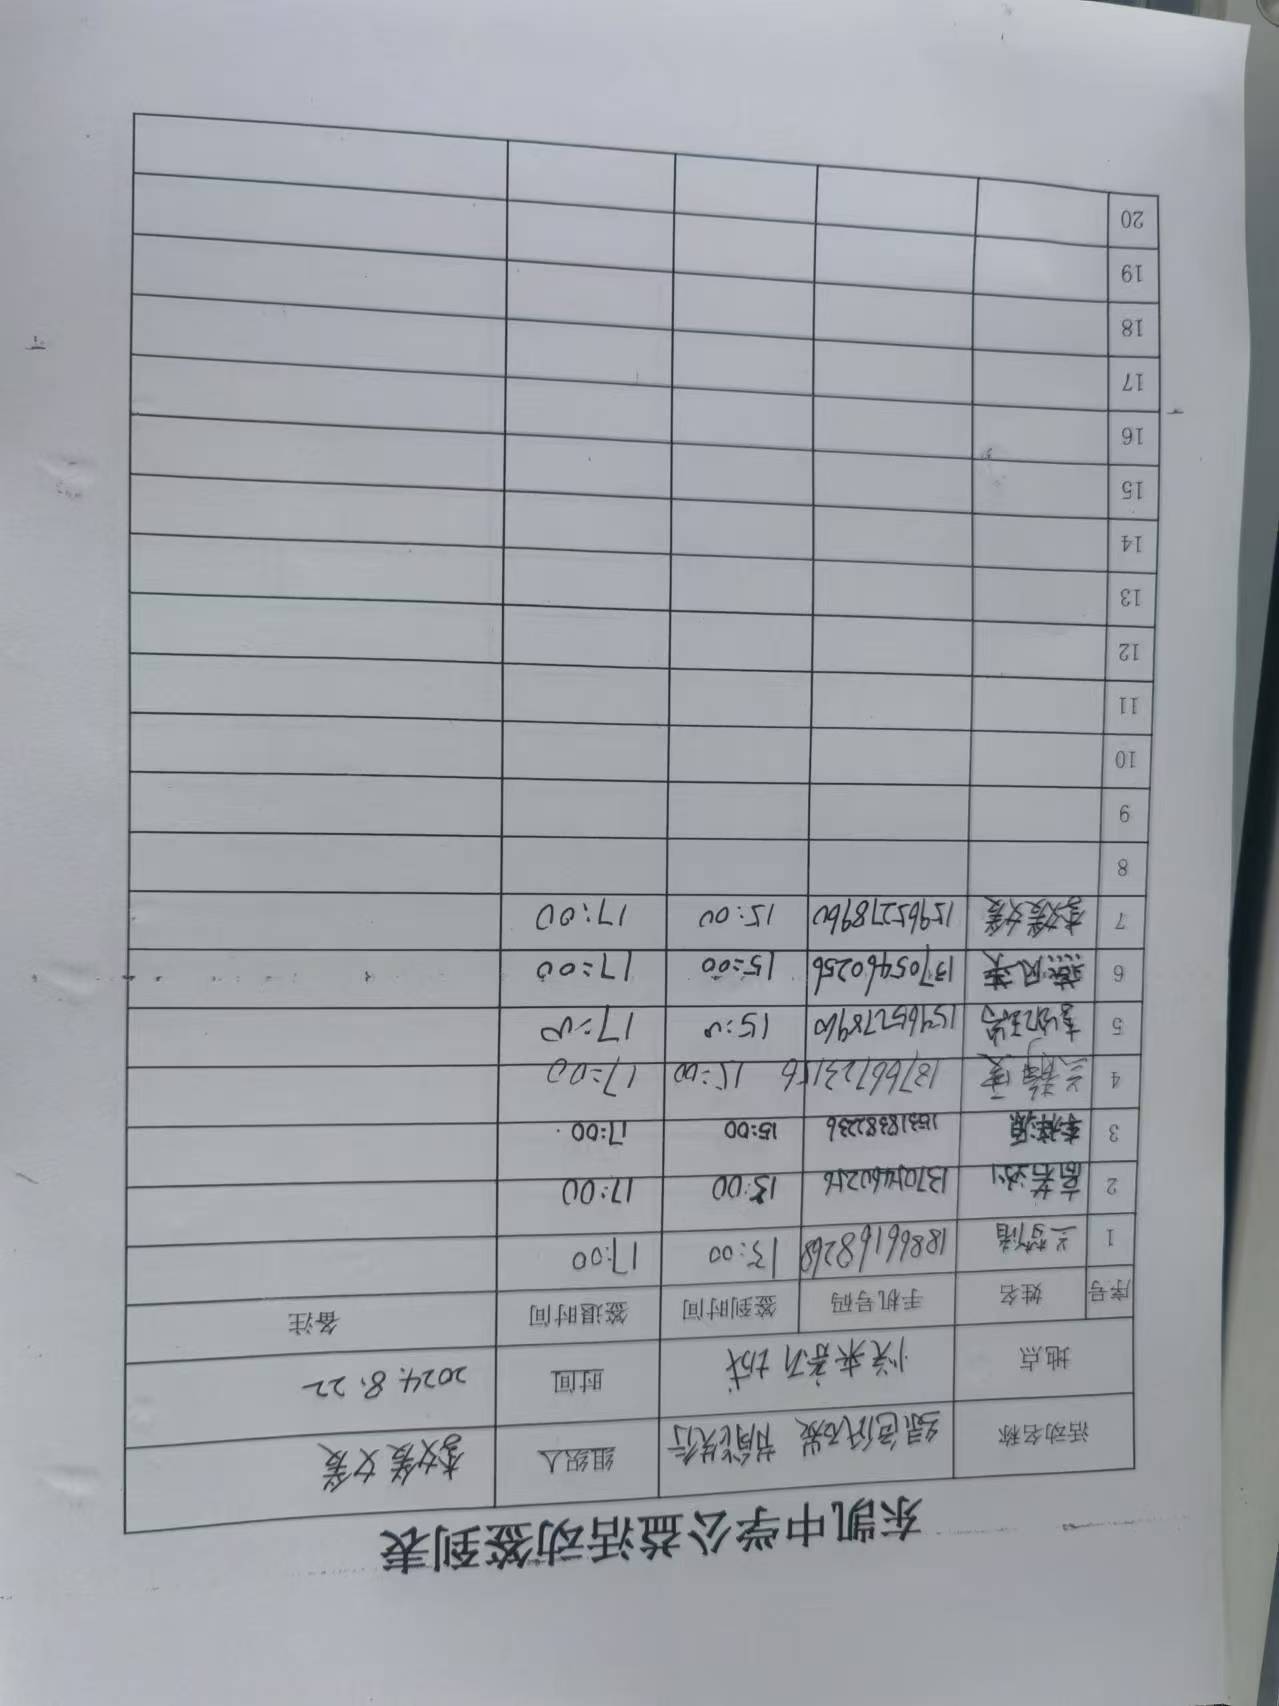 东凯中学公益活动签到表
活动名称 绿色低碳 节能先行 组织人
地点 悦来新城 时间 2024.8.22
序号 姓名 手机号码 签到时间 签退时间 备注
1 兰梦诺 18866168268 15:00 17:00
2 高若汐 13705460256 15:00 17:00
3 李梓源 15318382236 15:00 17:00
4 13766723156 15:00 17:00
5 15965278960 15:00 17:00
6 燕风英 13705460256 15:00 17:00
7 15965278960 15:00 17:00
8
9
10
11
12
13
14
15
16
17
18
19
20